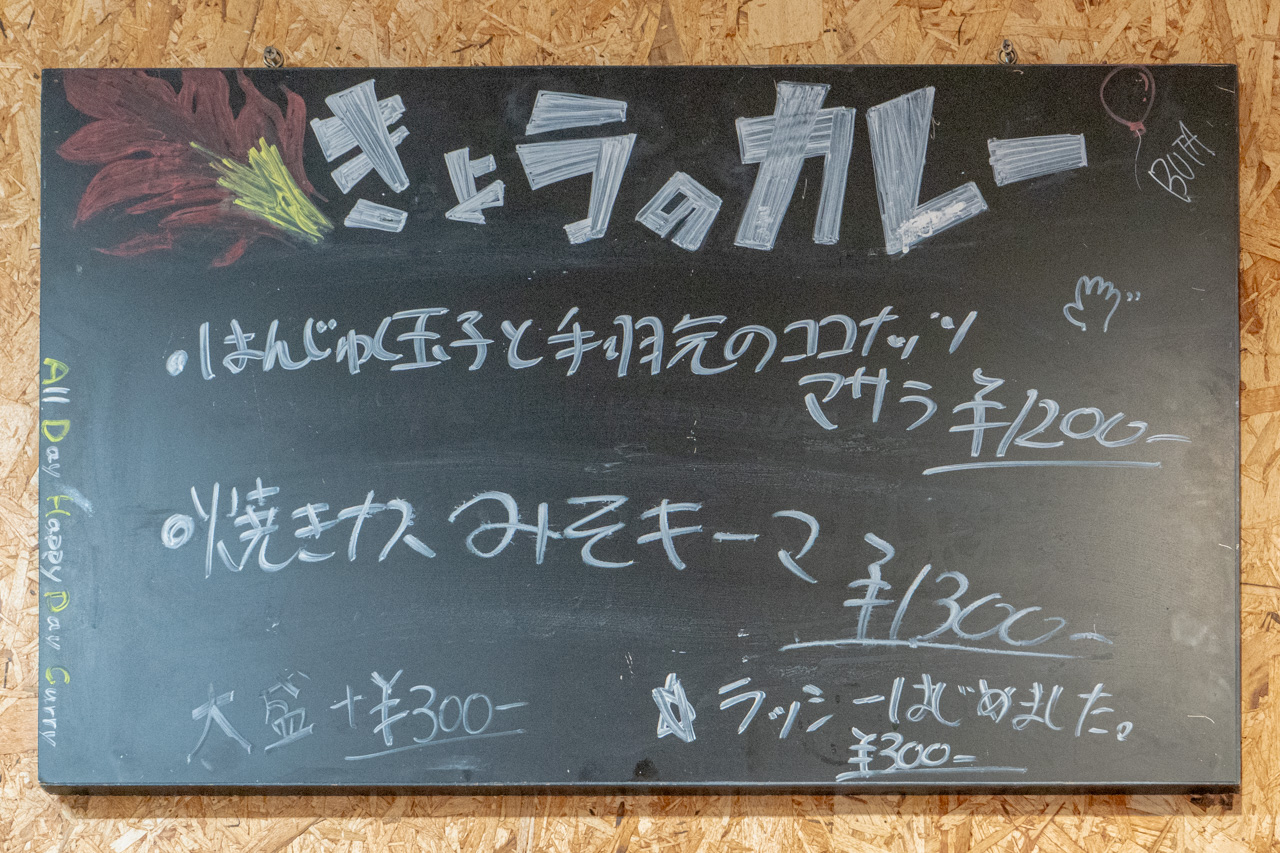 きょうのカレー
BUTA
・はんじゅく玉子と手羽元のココナッツ
マサラ ¥1200-
◎焼きナス みそキーマ
¥1300-
大盛 +¥300-
☆ラッシーはじめました。
¥300-
All Day Happy Day Curry